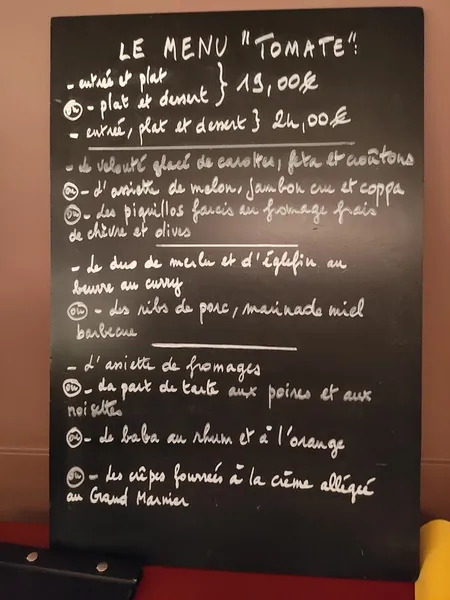 LE MENU "TOMATE":
- entrée et plat
ou - plat et dessert } 19,00€
- entrée, plat et dessert } 24,00€
- Le velouté glacé de carottes, feta et croûtons
ou - L'assiette de melon, jambon cru et coppa
ou - Les piquillos farcis au fromage frais
de chèvre et olives
- Le duo de merlu et d'églefin au
beurre au curry
ou - Les ribs de porc, marinade miel
barbecue
- L'assiette de fromages
ou - La part de tarte aux poires et aux
noisettes
ou - Le baba au rhum et à l'orange
ou - Les crêpes fourrées à la crème allégée
au Grand Marnier